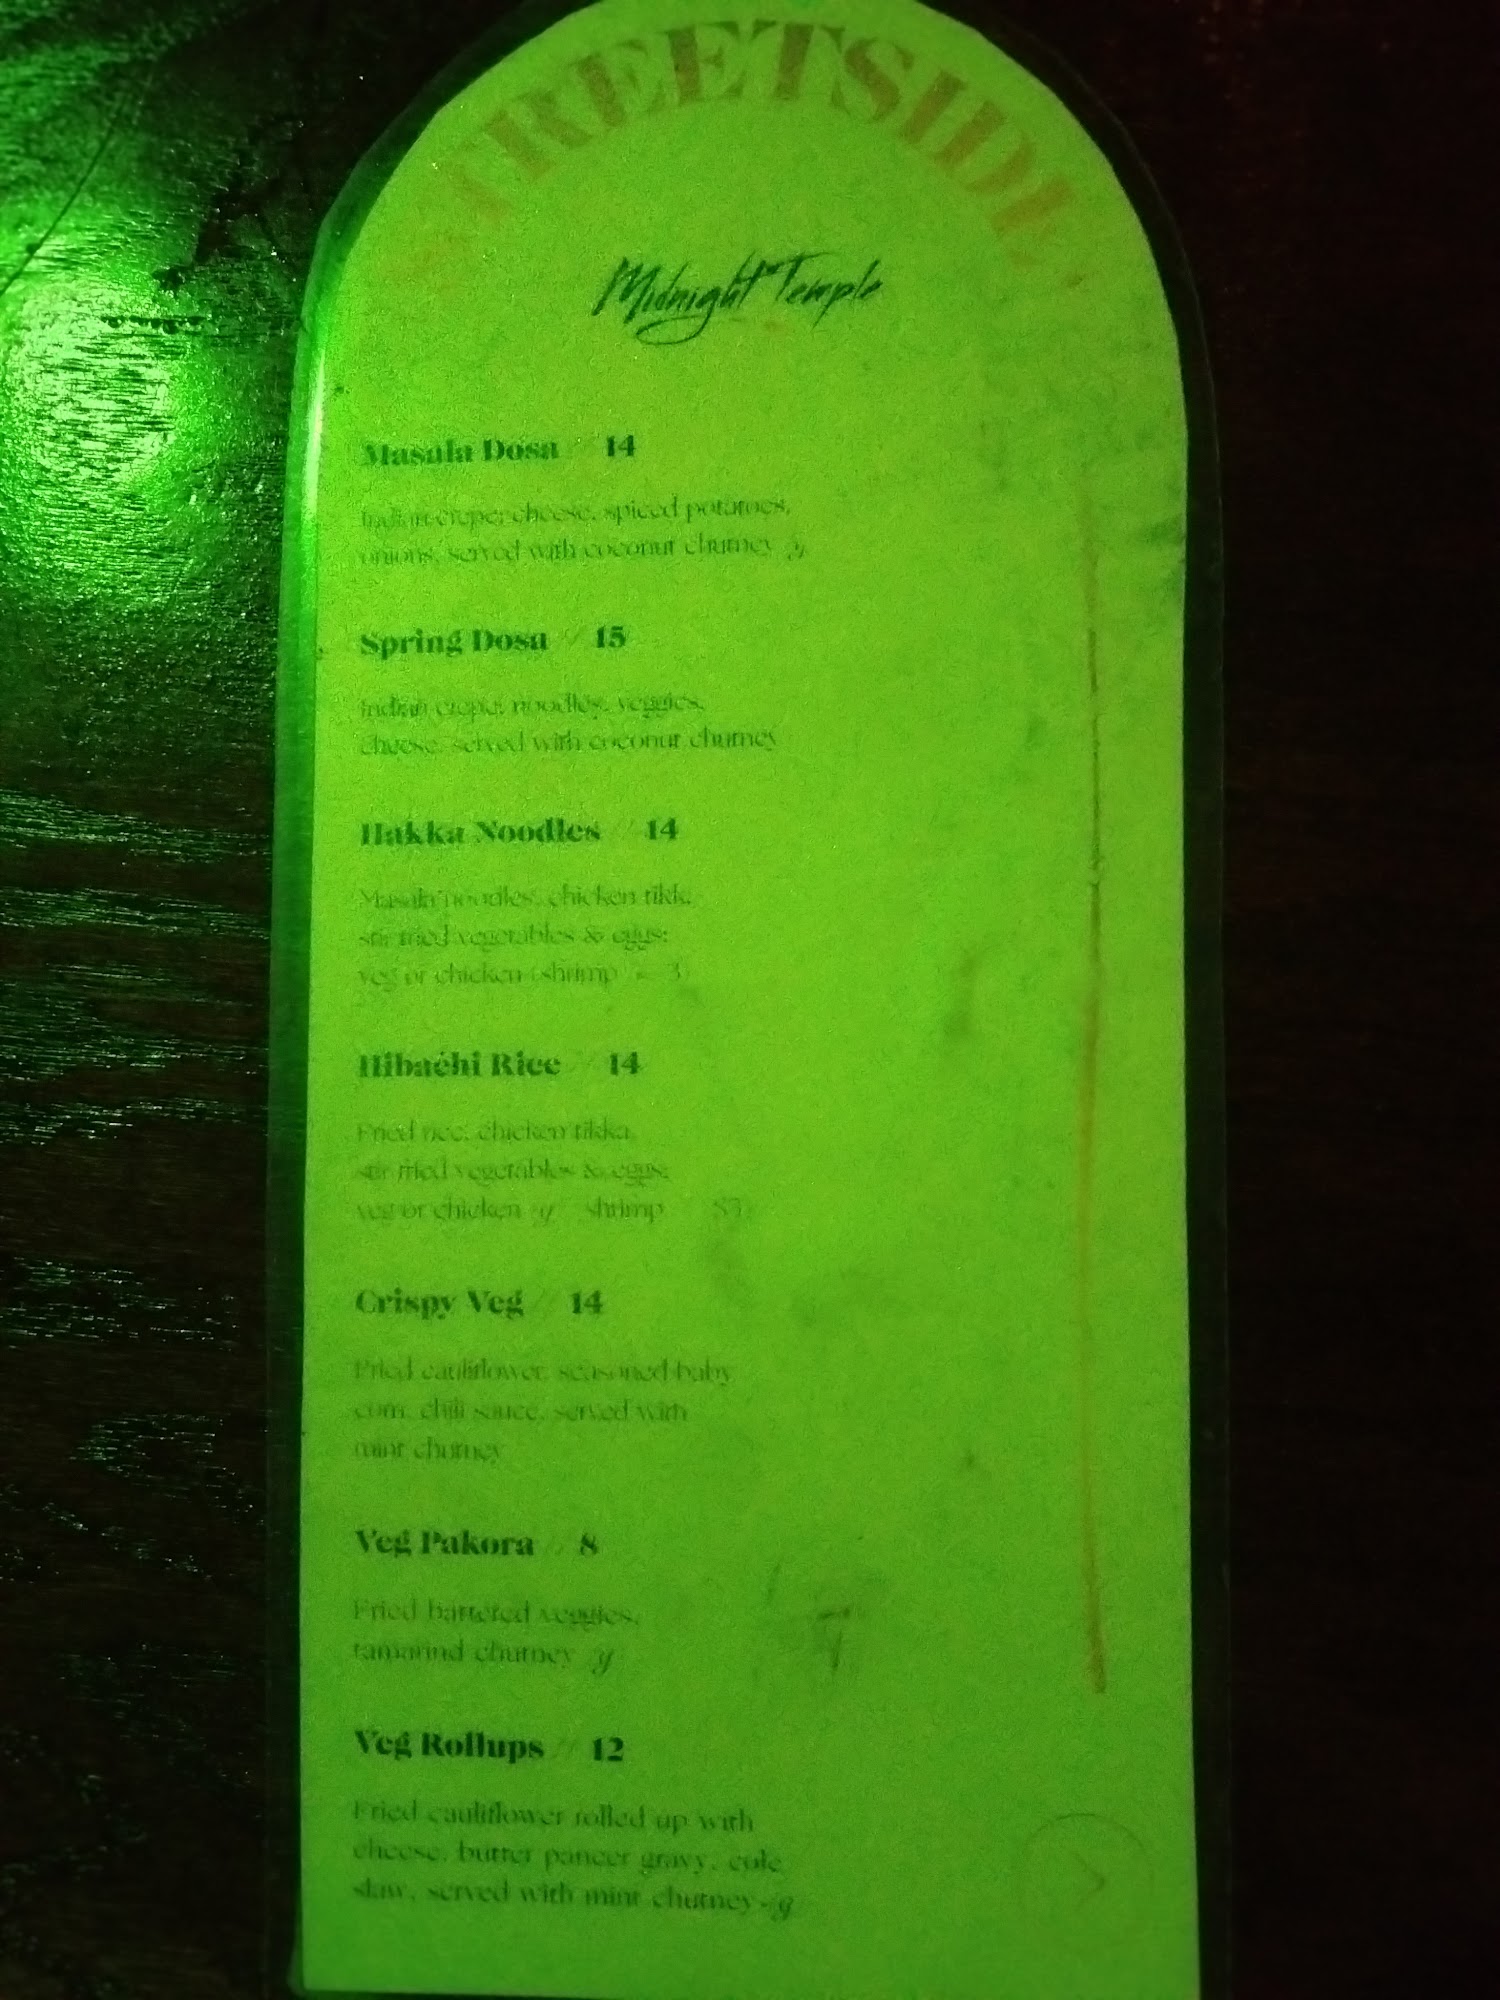 STREETSIDE
Midnight Temple
Masala Dosa // 14
Indian crepe, cheese, spiced potatoes,
onions, served with coconut chutney g
Spring Dosa // 15
Indian crepe, noodles, veggies,
cheese, served with coconut chutney
Hakka Noodles // 14
Masala noodles, chicken tikka,
stir fried vegetables & eggs;
veg or chicken (shrimp + 3)
Hibachi Rice // 14
Fried rice, chicken tikka,
stir fried vegetables & eggs;
veg or chicken g shrimp $3)
Crispy Veg // 14
Fried cauliflower, seasoned baby
corn, chili sauce, served with
mint chutney
Veg Pakora // 8
Fried battered veggies,
tamarind chutney g
Veg Rollups // 12
Fried cauliflower rolled up with
cheese, butter paneer gravy, cole
slaw, served with mint chutney - g